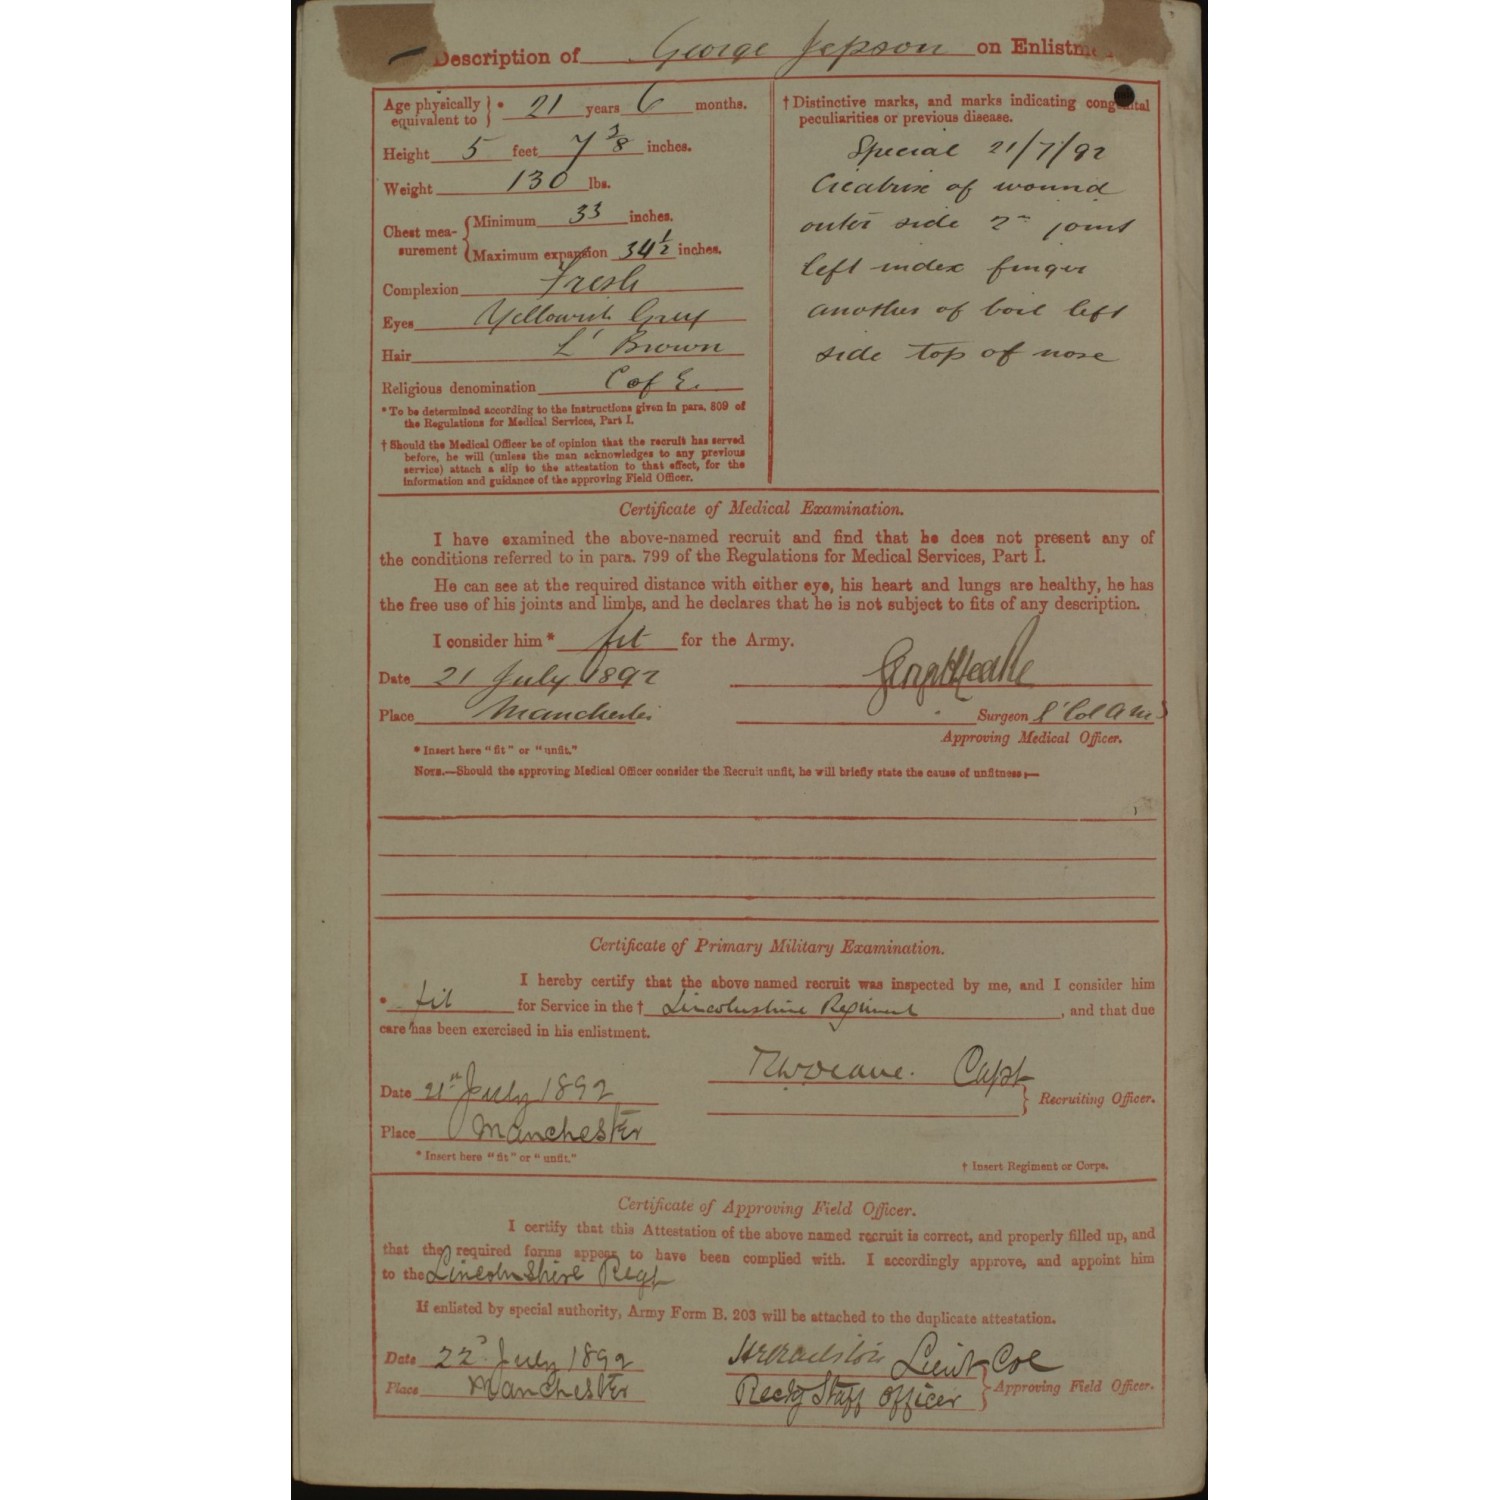 Description of George Jepson on Enlistme
Age physically equivalent to * 21 years 6 months.
Height 5 feet 7 3/8 inches.
Weight 130 lbs.
Chest mea-surement { Minimum 33 inches.
Maximum expansion 34 1/2 inches.
Complexion Fresh
Eyes Yellowish Grey
Hair Lt Brown
Religious denomination C of E.
* To be determined according to the instructions given in para. 809 of
the Regulations for Medical Services, Part I.
† Should the Medical Officer be of opinion that the recruit has served
before, he will (unless the man acknowledges to any previous
service) attach a slip to the attestation to that effect, for the
information and guidance of the approving Field Officer.
† Distinctive marks, and marks indicating congenital
peculiarities or previous disease.
Special 21/7/92
Cicatrix of wound
outer side 2nd joint
left index finger
another of boil left
side top of nose
Certificate of Medical Examination.
I have examined the above-named recruit and find that he does not present any of
the conditions referred to in para. 799 of the Regulations for Medical Services, Part I.
He can see at the required distance with either eye, his heart and lungs are healthy, he has
the free use of his joints and limbs, and he declares that he is not subject to fits of any description.
I consider him * fit for the Army.
Date 21 July 1892
Place Manchester
Surgeon
Approving Medical Officer.
* Insert here "fit" or "unfit."
NOTE.—Should the approving Medical Officer consider the Recruit unfit, he will briefly state the cause of unfitness:—
Certificate of Primary Military Examination.
I hereby certify that the above named recruit was inspected by me, and I consider him
* fit for Service in the † Lincolnshire Regiment, and that due
care has been exercised in his enlistment.
Capt
Date 21st July 1892
Recruiting Officer.
Place Manchester
* Insert here "fit" or "unfit."
† Insert Regiment or Corps.
Certificate of Approving Field Officer.
I certify that this Attestation of the above named recruit is correct, and properly filled up, and
that the required forms appear to have been complied with. I accordingly approve, and appoint him
to the Lincolnshire Regt
If enlisted by special authority, Army Form B. 203 will be attached to the duplicate attestation.
Date 22d July 1892
Lieut Col
Place Manchester
Recrg Staff Officer
Approving Field Officer.